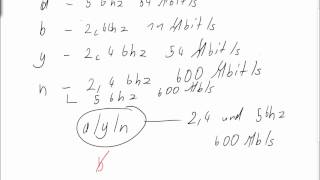 a - 5 Ghz 54 Mbit/s
b - 2,4 Ghz 11 Mbit/s
y - 2,4 Ghz 54 Mbit/s
n - 2,4 Ghz 600 Mbit/s
5 Ghz 600 Mb/s
a/y/n - 2,4 und 5 Ghz
600 Mb/s
b